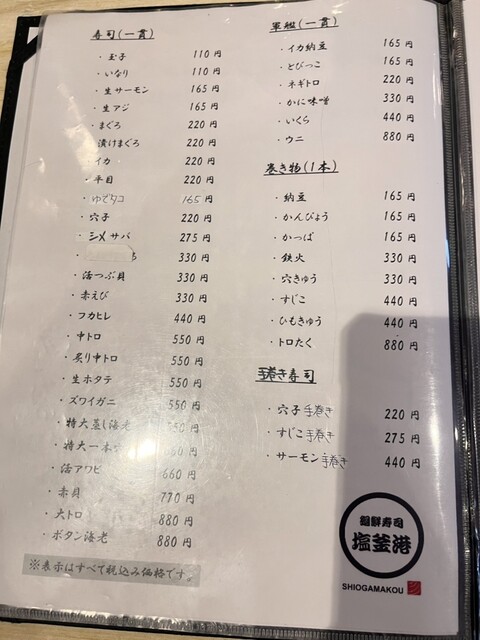 寿司(一貫)
・玉子 110 円
・いなり 110 円
・生サーモン 165 円
・生アジ 165 円
・まぐろ 220 円
・漬けまぐろ 220 円
・イカ 220 円
・平目 220 円
・ゆでタコ 165 円
・穴子 220 円
・シメサバ 275 円
・ 330 円
・活つぶ貝 330 円
・赤えび 330 円
・フカヒレ 440 円
・中トロ 550 円
・炙り中トロ 550 円
・生ホタテ 550 円
・ズワイガニ 550 円
・特大蒸し海老 円
・特大一本 円
・活アワビ 660 円
・赤貝 770 円
・大トロ 880 円
・ボタン海老 880 円
※表示はすべて税込み価格です。
軍艦(一貫)
・イカ納豆 165 円
・とびっこ 165 円
・ネギトロ 220 円
・かに味噌 330 円
・いくら 440 円
・ウニ 880 円
巻き物(1本)
・納豆 165 円
・かんぴょう 165 円
・かっぱ 165 円
・鉄火 330 円
・穴きゅう 330 円
・すじこ 440 円
・ひもきゅう 440 円
・トロたく 880 円
手巻き寿司
・穴子手巻き 220 円
・すじこ手巻き 275 円
・サーモン手巻き 440 円
廻鮮寿司
塩釜港
SHIOGAMAKOU